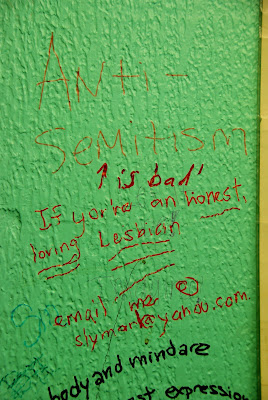 Anti-
Semitism
↑ is bad'
If you're an honest,
loving Lesbian
email me ☺
slymark@yahoo.com
body and mind are
st expression